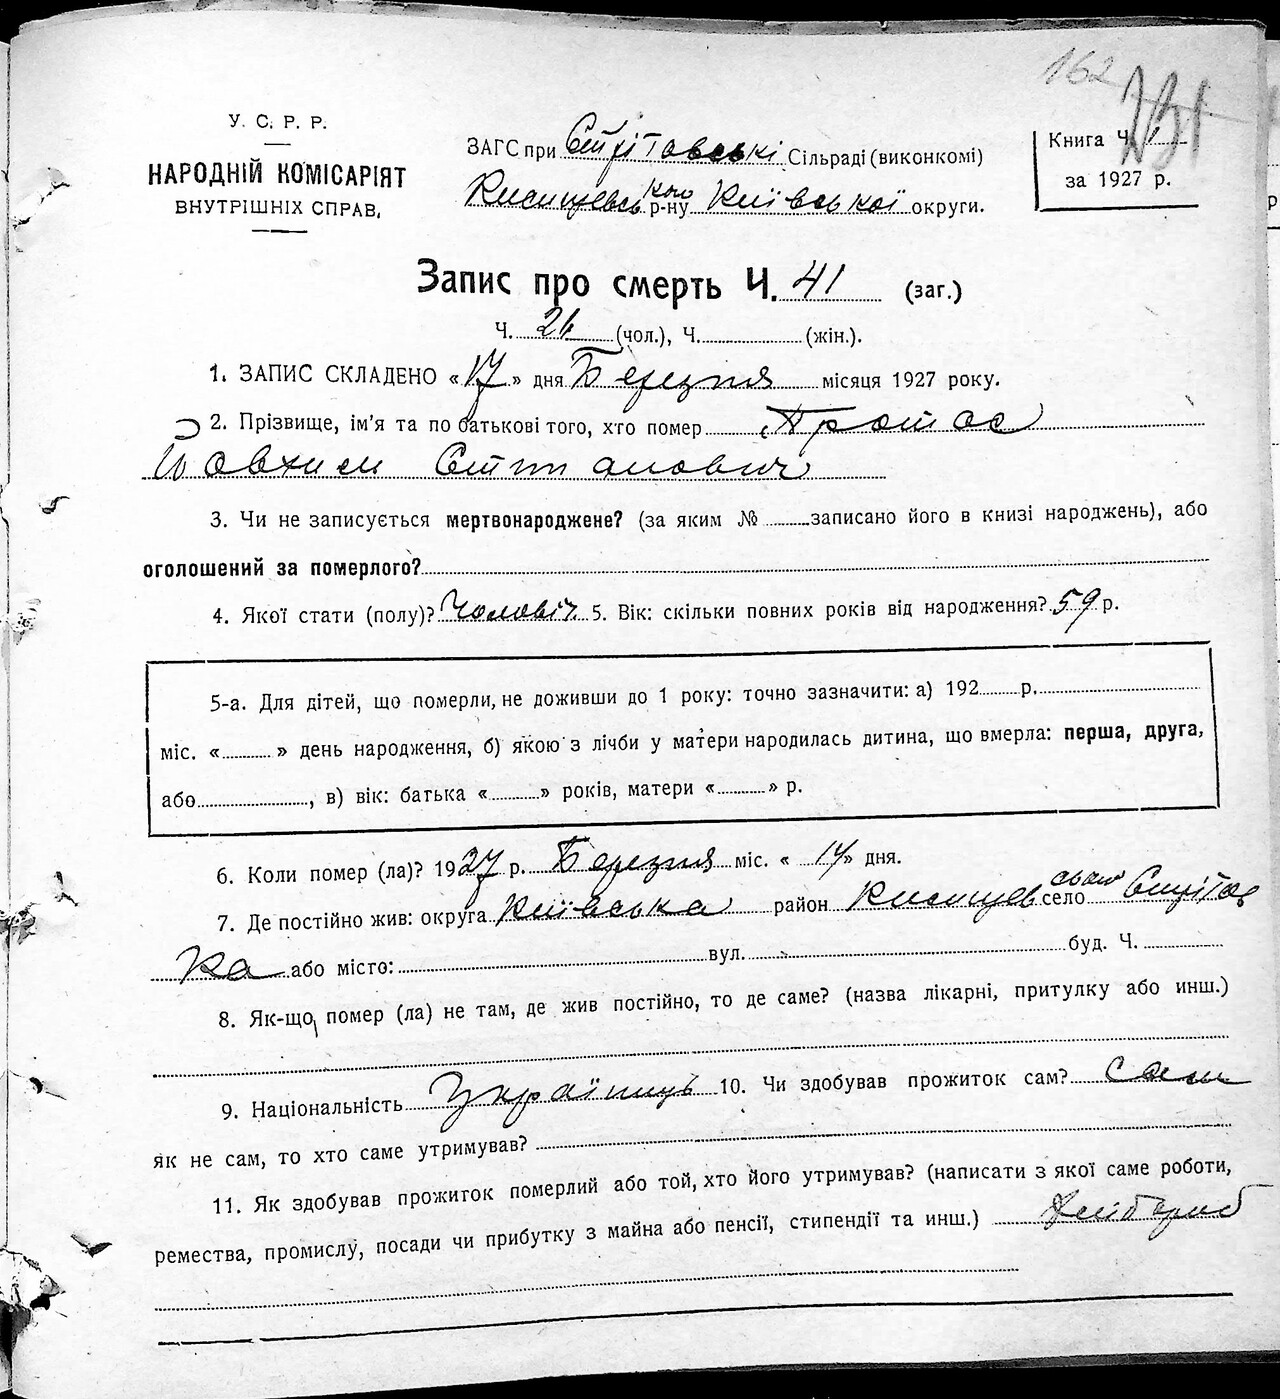 162
У. С. Р. Р.
НАРОДНІЙ КОМІСАРІЯТ
ВНУТРІШНІХ СПРАВ.
ЗАГС при Спітавські Сільраді (виконкомі)
р-ну Київської округи.
Книга Ч. 1
за 1927 р.
Запис про смерть Ч. 41 (заг.)
Ч. 21 (чол.), Ч. (жін.).
1. ЗАПИС СКЛАДЕНО «17» дня Березня місяця 1927 року.
2. Прізвище, ім'я та по батькові того, хто помер Протас
Йовхим Степанович
3. Чи не записується мертвонароджене? (за яким № записано його в книзі народжень), або
оголошений за померлого?
4. Якої стати (полу)? Чоловіч. 5. Вік: скільки повних років від народження? 59 р.
5-а. Для дітей, що померли, не доживши до 1 року: точно зазначити: а) 192 р.
міс. « » день народження, б) якою з лічби у матери народилась дитина, що вмерла: перша, друга,
або , в) вік: батька « » років, матери « » р.
6. Коли помер (ла)? 1927 р. Березня міс. « 14 » дня.
7. Де постійно жив: округа Київська район село
ка або місто: вул. буд. Ч.
8. Як-що помер (ла) не там, де жив постійно, то де саме? (назва лікарні, притулку або инш.)
9. Національність Українць 10. Чи здобував прожиток сам? сам
як не сам, то хто саме утримував?
11. Як здобував прожиток померлий або той, хто його утримував? (написати з якої саме роботи,
ремества, промислу, посади чи прибутку з майна або пенсії, стипендії та инш.) Хлібороб